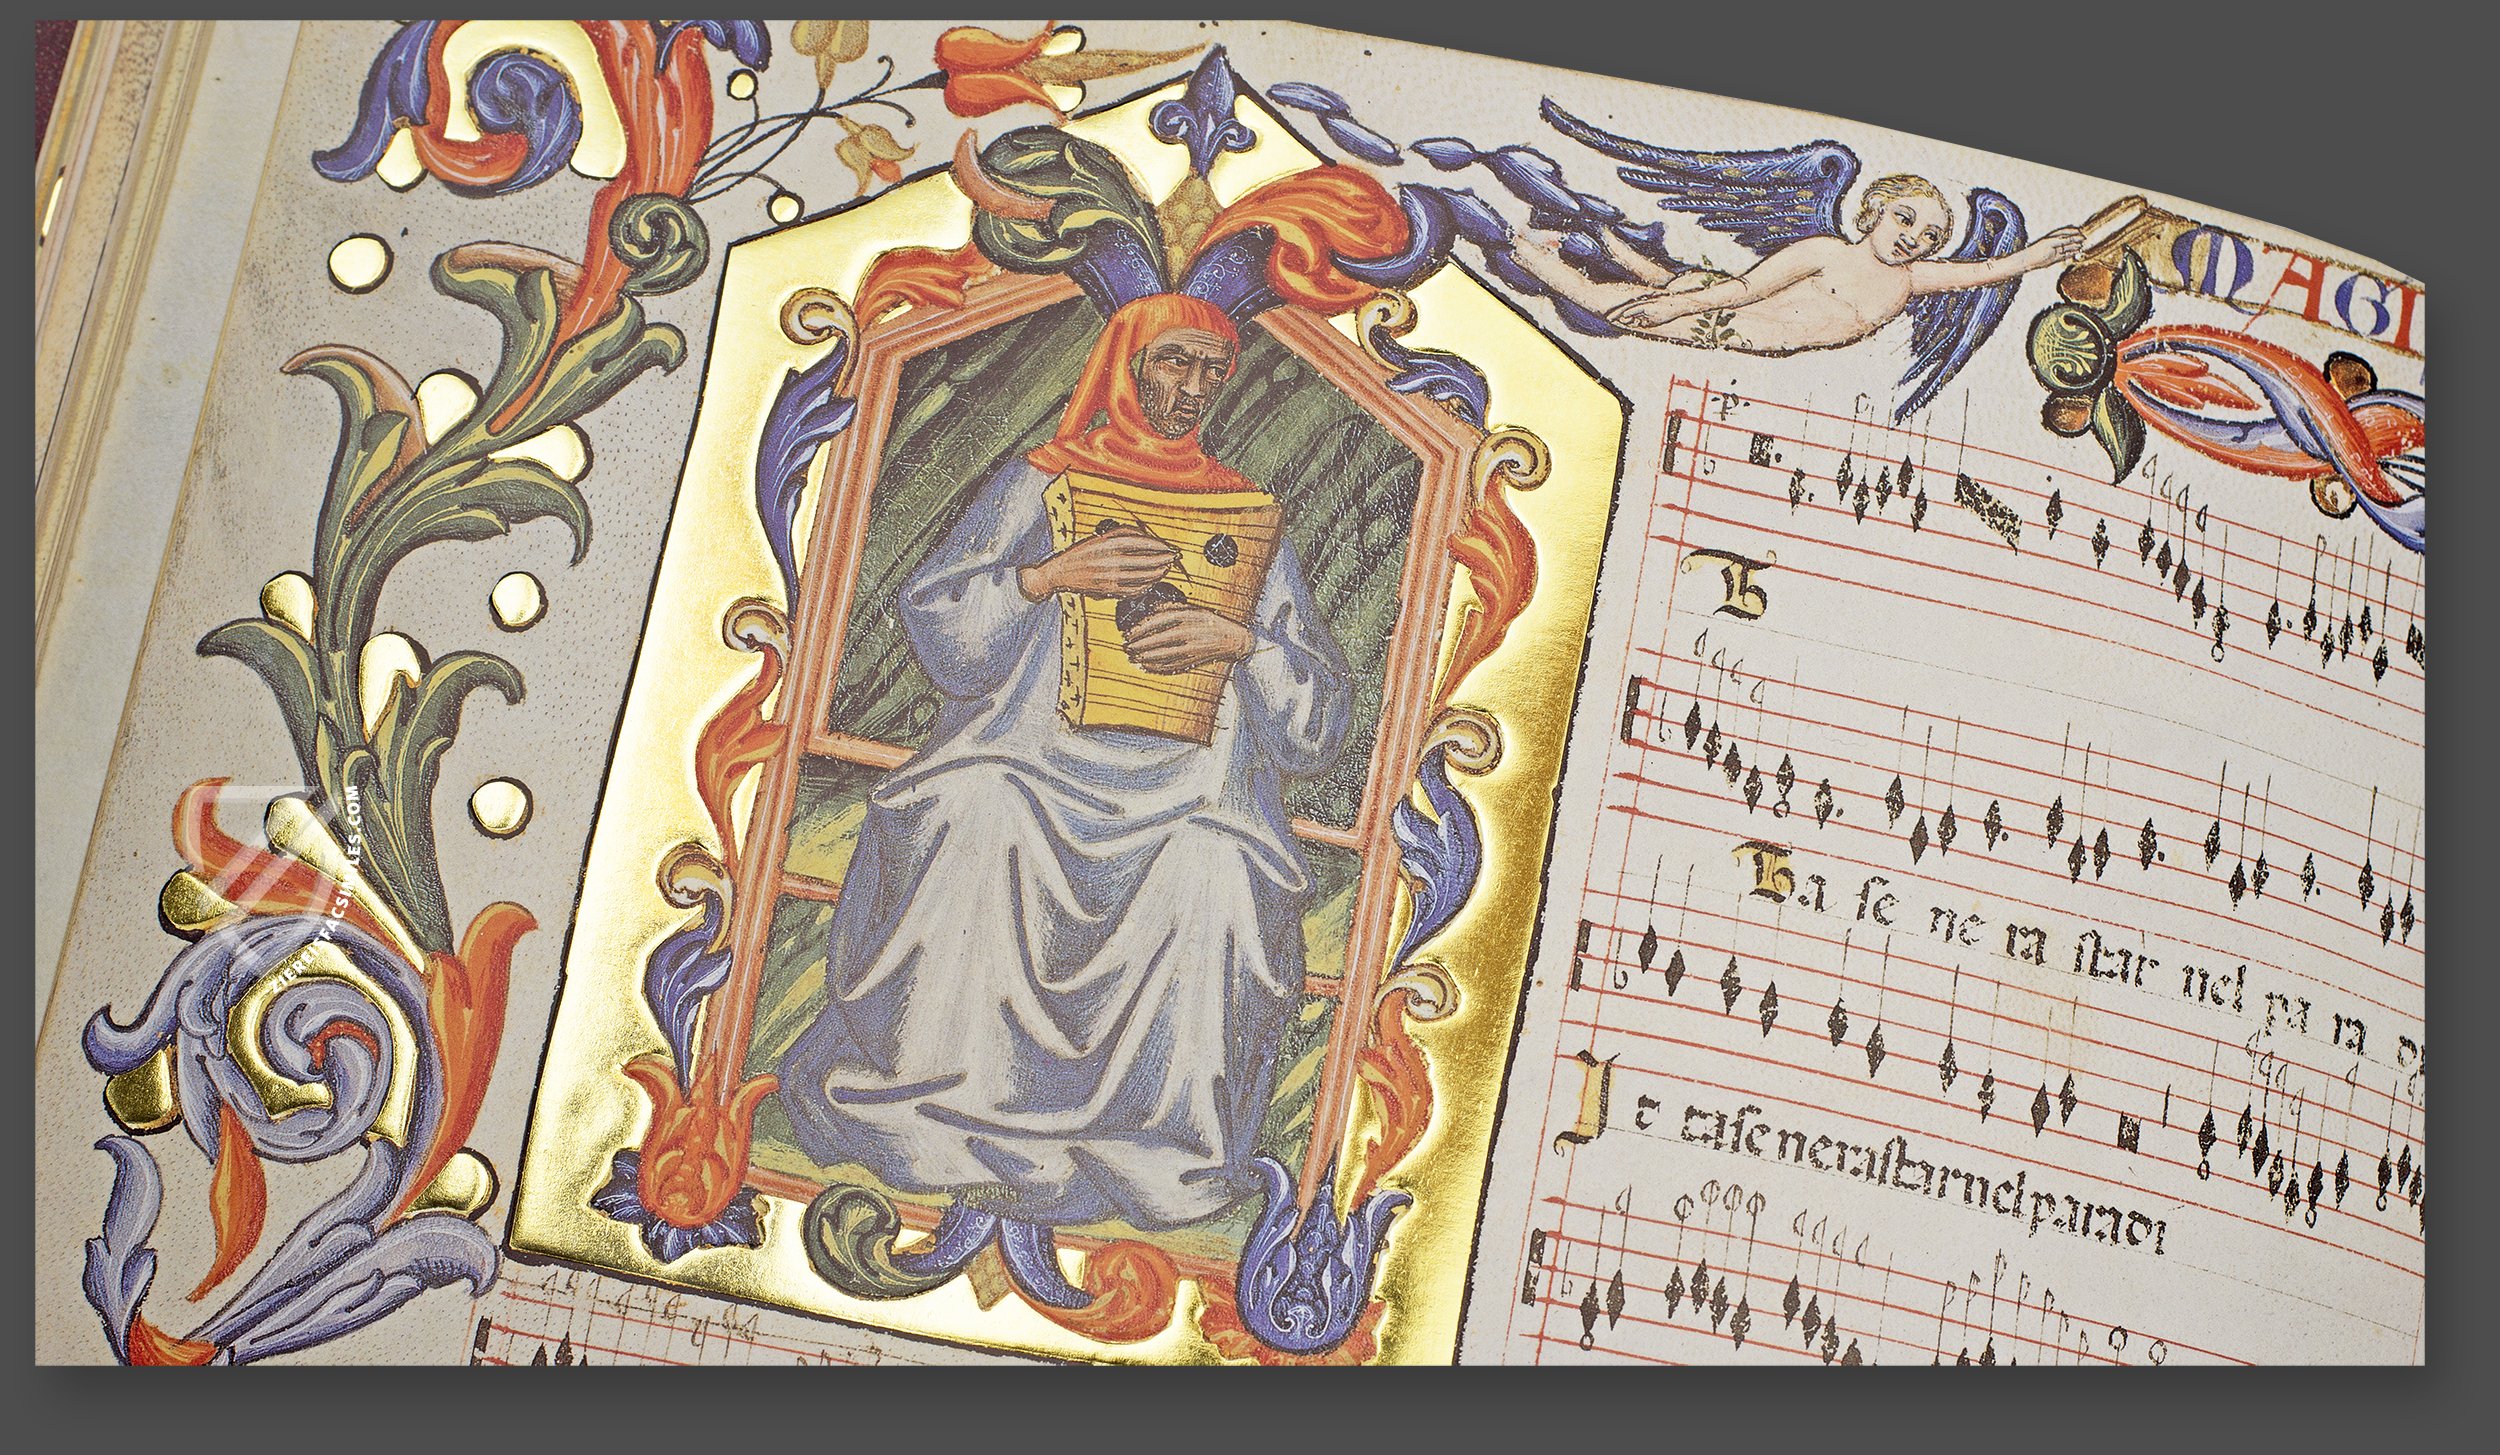 MAGI
.p.
B
Ba se ne ra star nel pa ra di
I e ra se ne ra star nel para di
ZIEREISFACSIMILES.COM